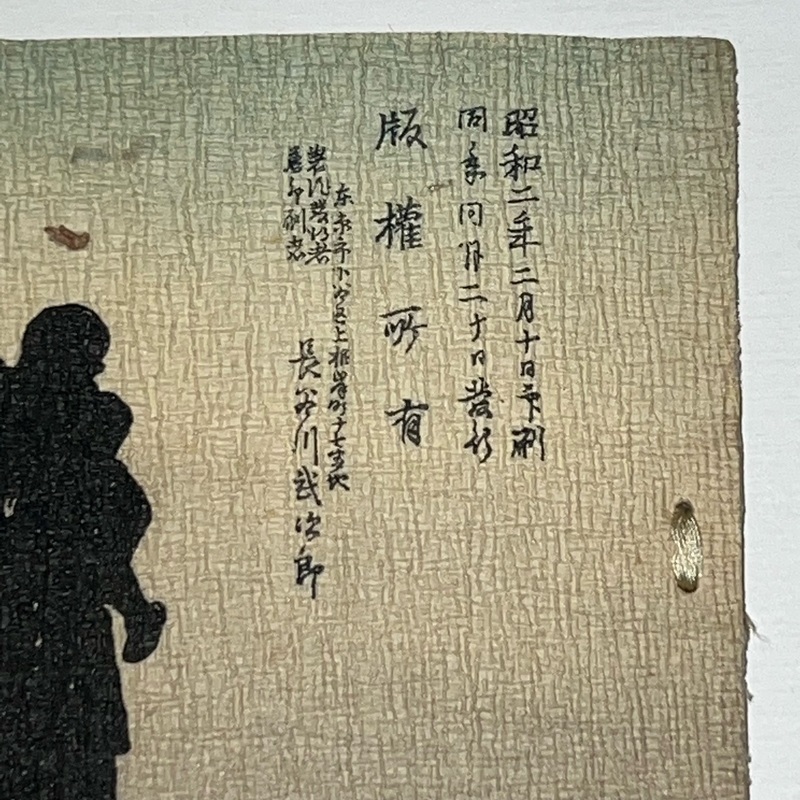 昭和二年二月十日印刷
同年同月二十日發行
版權所有
東京市下谷區上根岸町十七番地
發行者
兼印刷者
長谷川武次郎